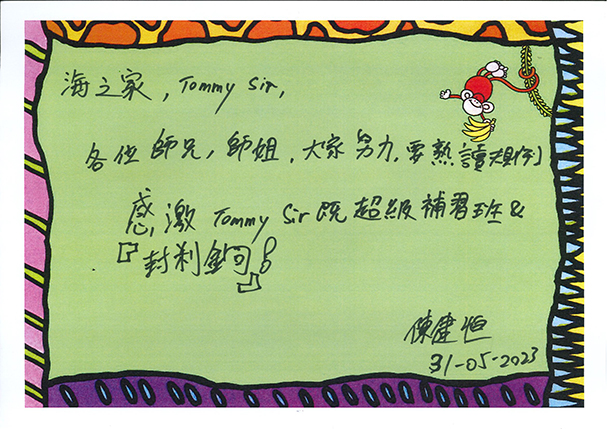 海之家, Tommy Sir,
各位師兄, 師姐, 大家努力, 要熟讀規例!
感激 Tommy Sir 既超級補習班 &
『封金句』!
陳建恒
31-05-2023